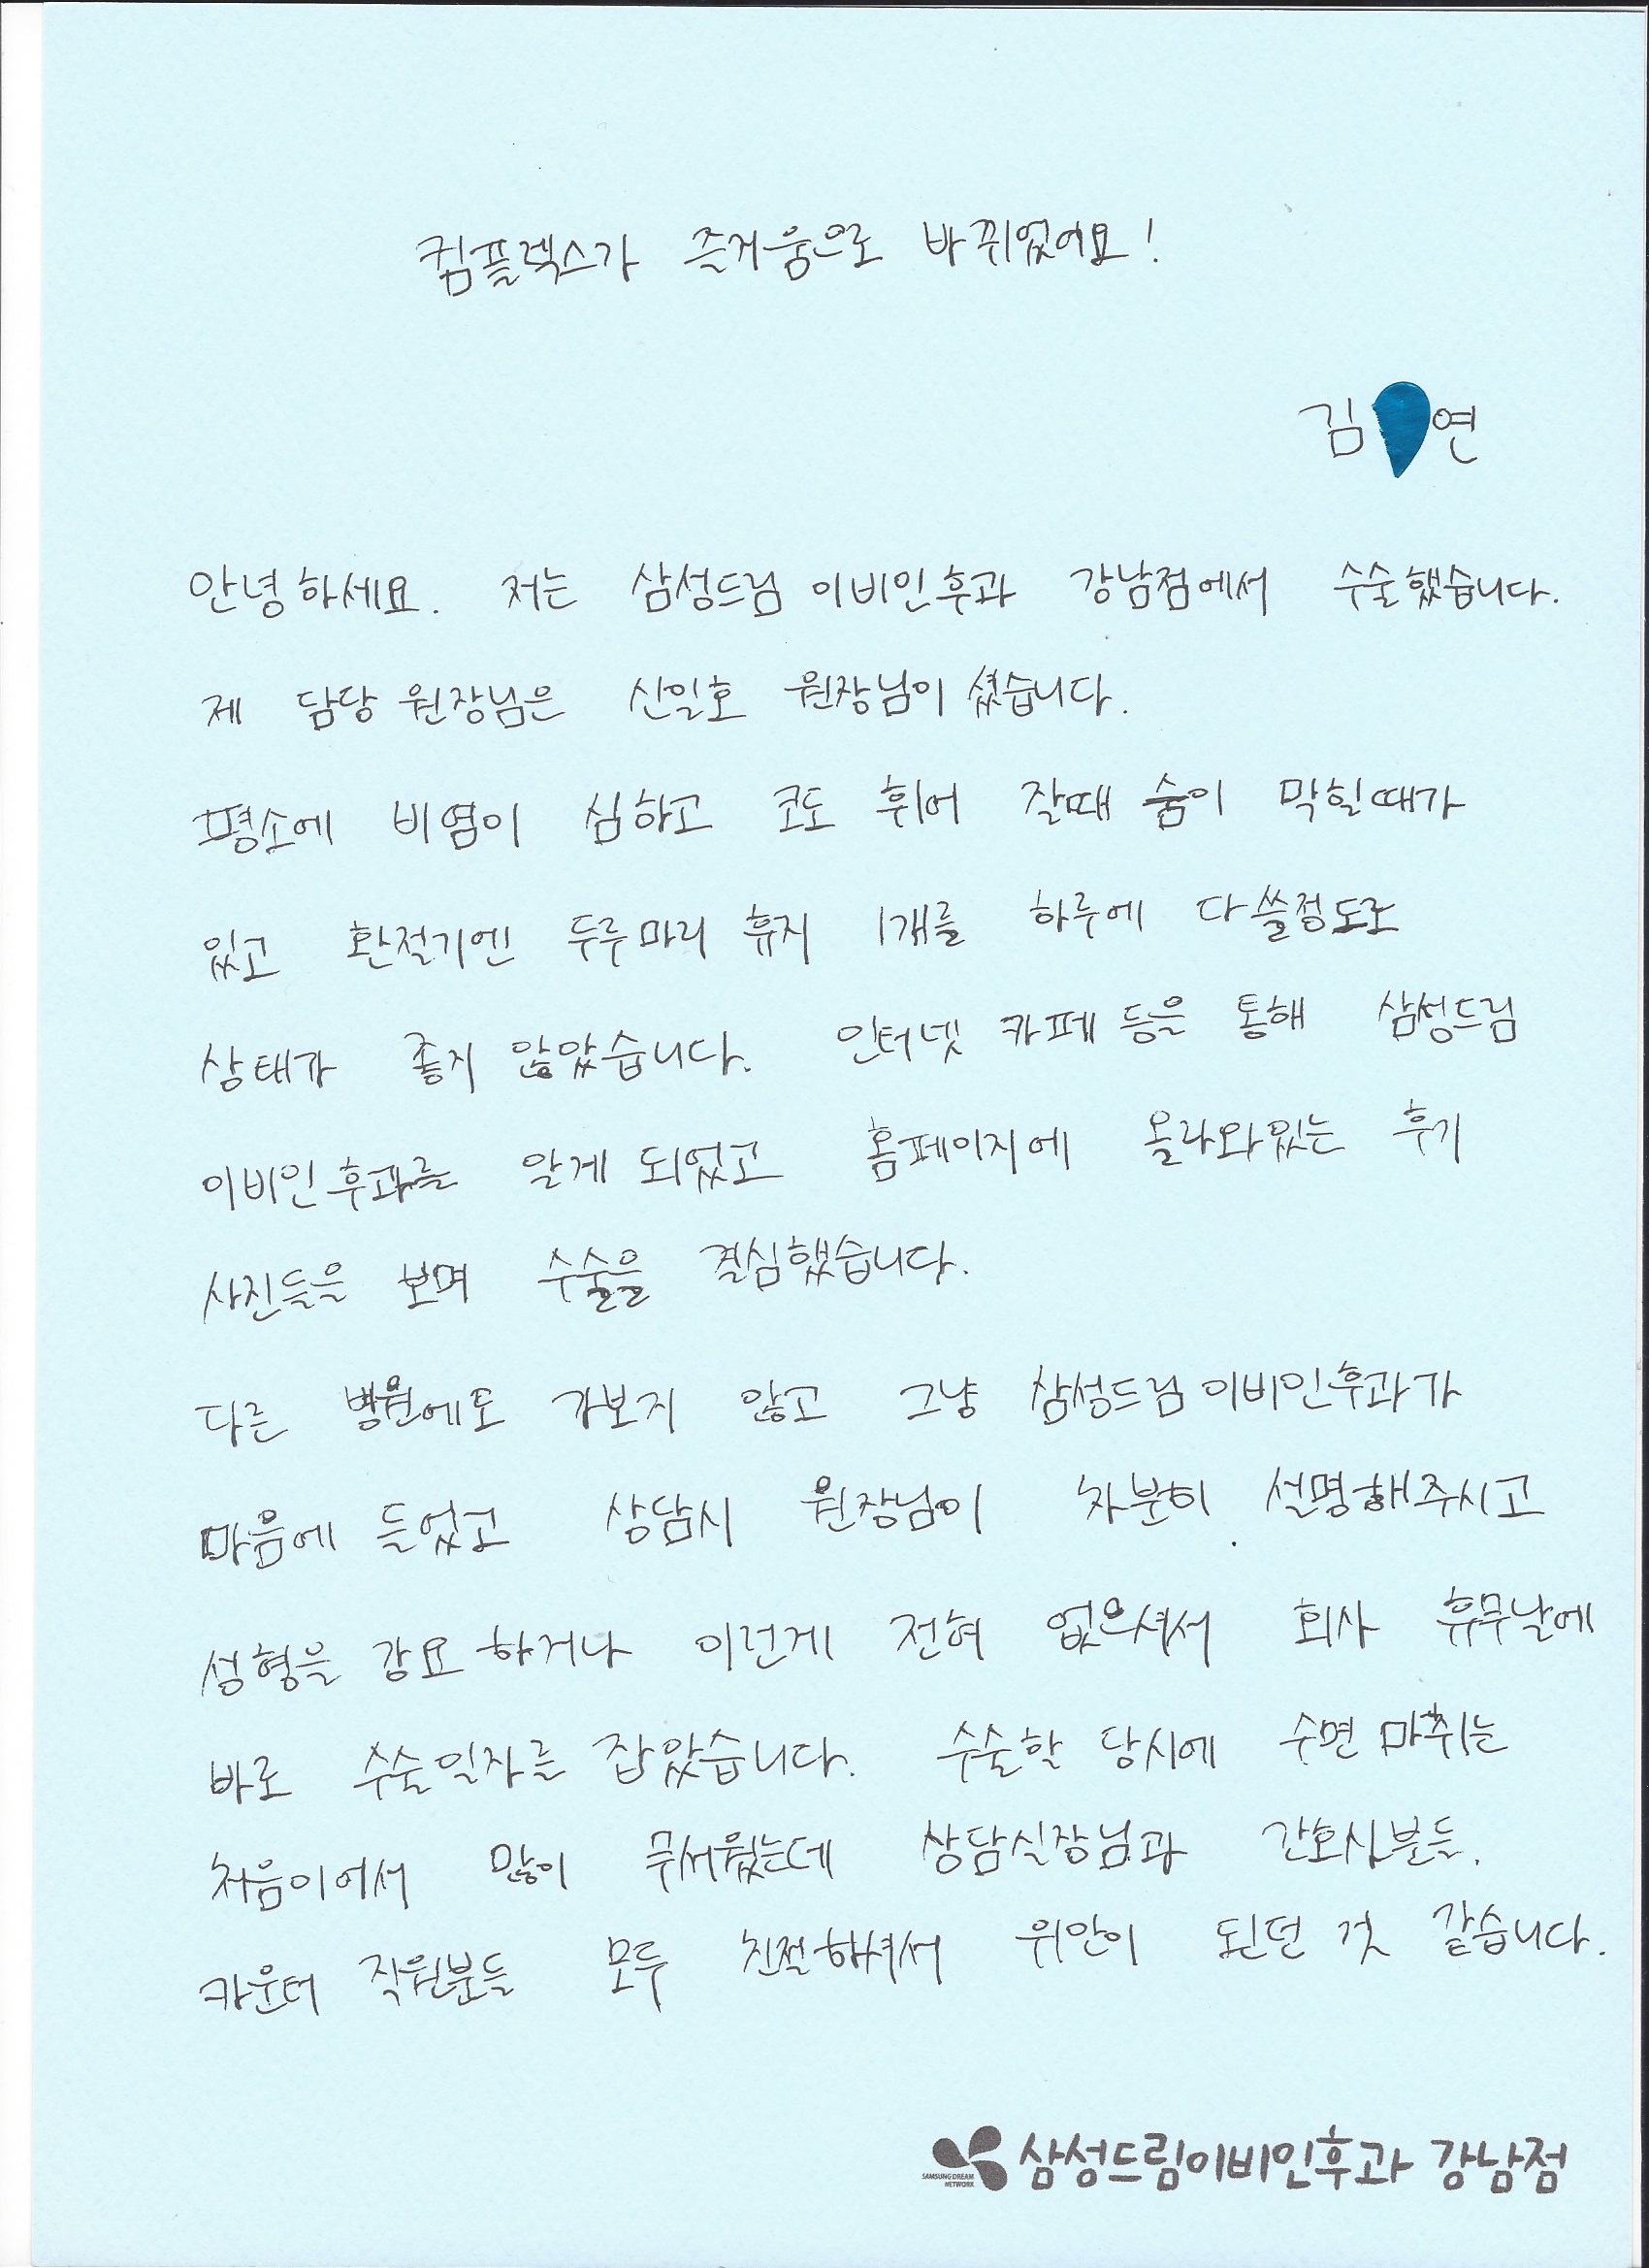 컴플렉스가 즐거움으로 바뀌었어요!
김 연
안녕하세요. 저는 삼성드림 이비인후과 강남점에서 수술했습니다.
제 담당 원장님은 신일호 원장님이셨습니다.
평소에 비염이 심하고 코도 휘어 잘때 숨이 막힐때가
있고 환절기엔 두루마리 휴지 1개를 하루에 다쓸정도로
상태가 좋지 않았습니다. 인터넷 카페 등을 통해 삼성드림
이비인후과를 알게 되었고 홈페이지에 올라와있는 후기
사진들을 보며 수술을 결심했습니다.
다른 병원에도 가보지 않고 그냥 삼성드림이비인후과가
마음에 들었고 상담시 원장님이 차분히 설명해주시고
성형을 강요하거나 이런게 전혀 없으셔서 회사 휴무날에
바로 수술일자를 잡았습니다. 수술할 당시에 수면 마취는
처음이어서 많이 무서웠는데 상담실장님과 간호사분들,
카운터 직원분들 모두 친절하셔서 위안이 된던 것 같습니다.
SAMSUNG DREAM NETWORK 삼성드림이비인후과 강남점